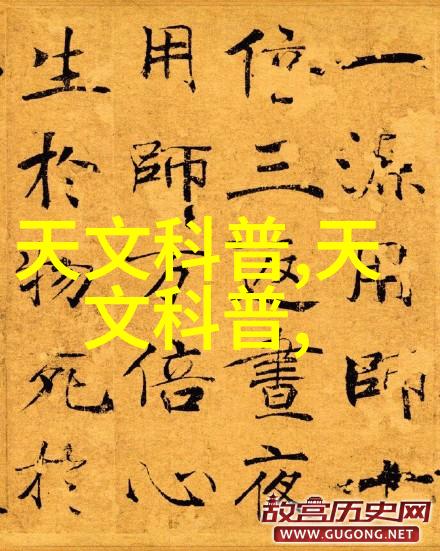 一源用師十
倍三返晝夜
用師万倍心
生於物死於
天文科普,天
文科普,
故宫历史网
WWW.GUGONG.NET